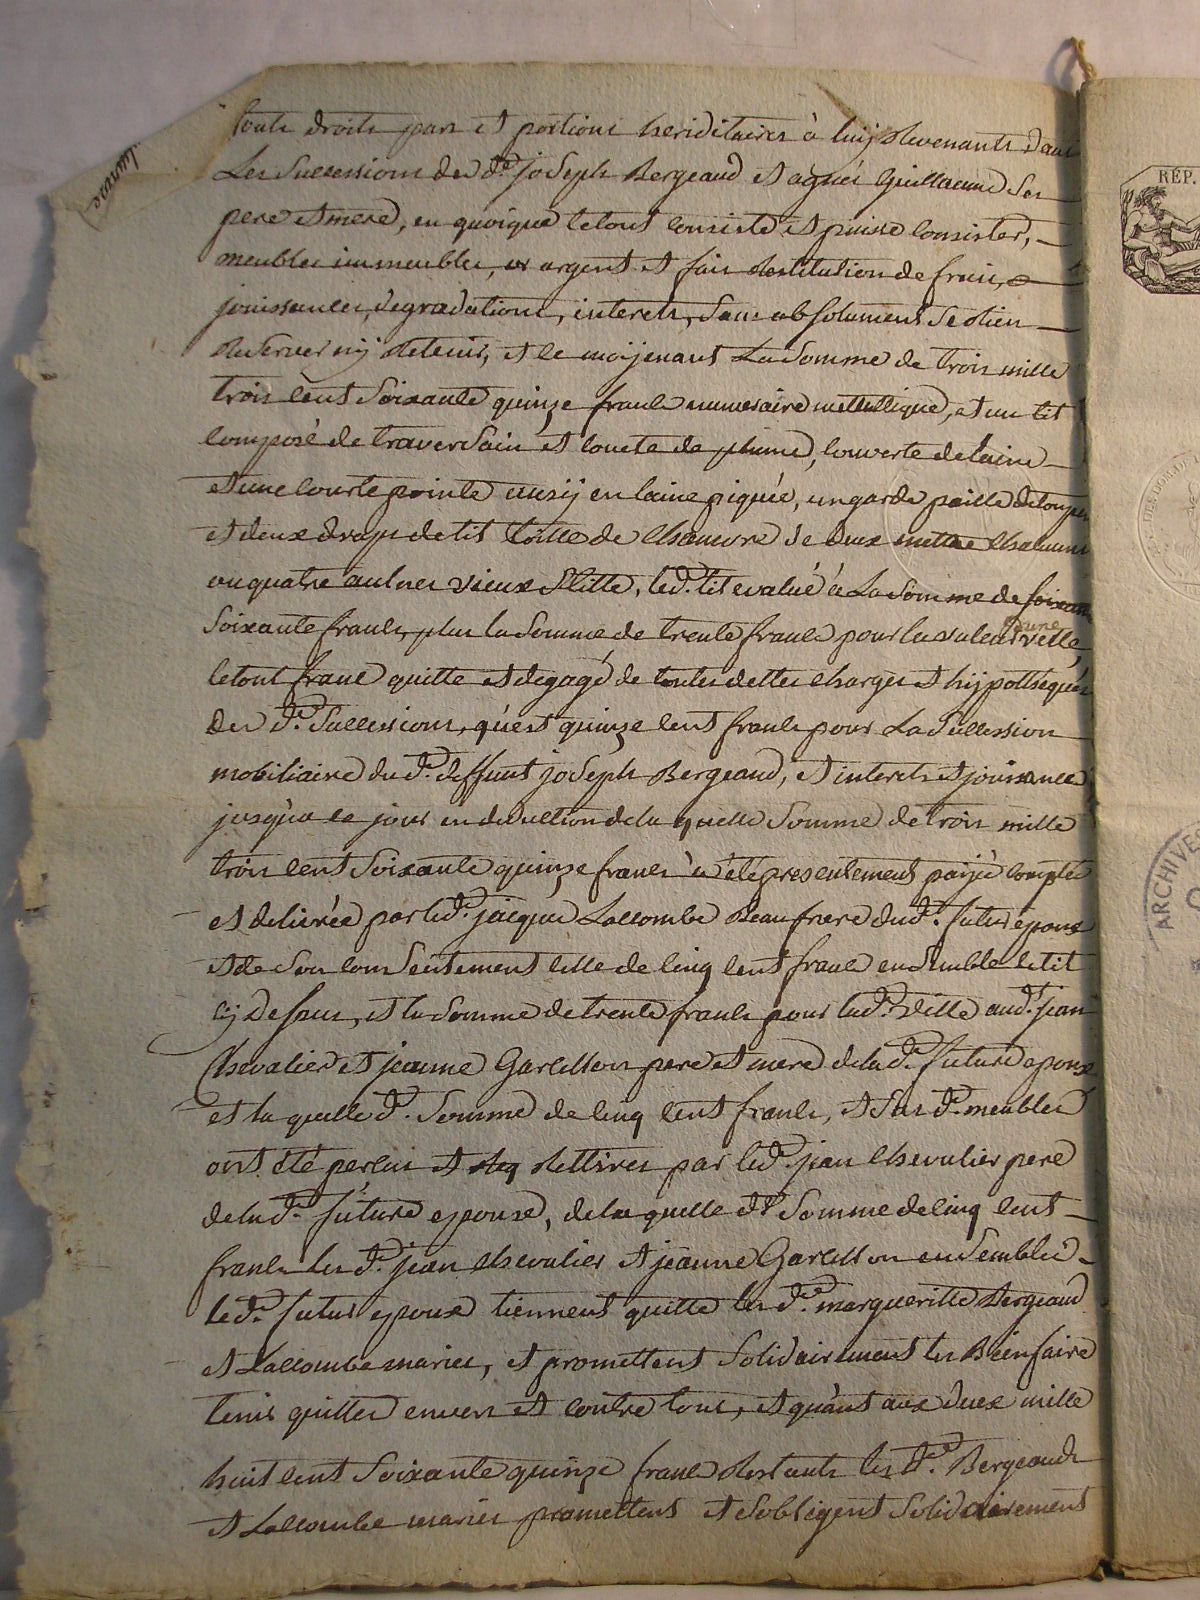 touts droits pars et portions hereditaires à luy Revenants dans
Les Successions des dts joSeph Bergeaud et agnés Guillaume Ses
pere et mere, en quoique letout consiste et puisse consister,
meubles immeubles, or argent et fais Restitution de fruis,
jouissances, degradations, interets, Sans absolument Se Rien
Reserver ny Retenir, et le moyenant La Somme de trois mille
trois cent Soixante quinze francs numeraire mettallique, et un lit
Composé de traverSain et Couete de plume, Couverte delaine
et une Courtepointe ausy en laine piquée, un garde paille detoupes
et deux draps de lit toille de Chanvre de deux mettre Chacuns
ou quatre aulnes vieux Stille, led. lit evalué à La Somme de Soixan
Soixante francs, plus la Somme de trente francs pour la valeur d'une velle,
letout franc quitte et degagé de toutes dettes charges et hypotheques
des dts Successions, qu'est quinze cent francs pour La Sucession
mobiliaire dud. deffunt joSeph Bergeaud, et interets et jouissances
jusqu'a ce jour en deduction de la quelle Somme de trois mille
trois cent Soixante quinze francs à été presentement payé compté
et delivrée par led. jacque Lacombe Beaufrere dud. futur epoux
et de Son Consentement celle de Cinq Cent francs ensemble le lit
Cy Dessus, et la Somme de trente francs pour lad. velle aud. jean
Chevalier et jeanne Garcisson pere et mere delad. future epouse
et la quelle d. Somme de Cinq Cent francs, et Sus d. meubles
ont été percus et Rettirés par led. jean Chevalier pere
delad. future epouse, de la quelle de Somme de Cinq Cent
francs les d. jean Chevalier et jeanne Garcisson enSembles
led. futur epoux tiennent quitte les d. margueritte Bergeaud
et Lacombe mariés, et promettent Solidairement les Bienfaire
tenir quittes envers et Contre tous, et quant aux deux mille
huit cent Soixante quinze francs Restants les d. Bergeaud
et Lacombe mariés promettent et Sobligent Solidairement
RÉP.
ARCHIVE